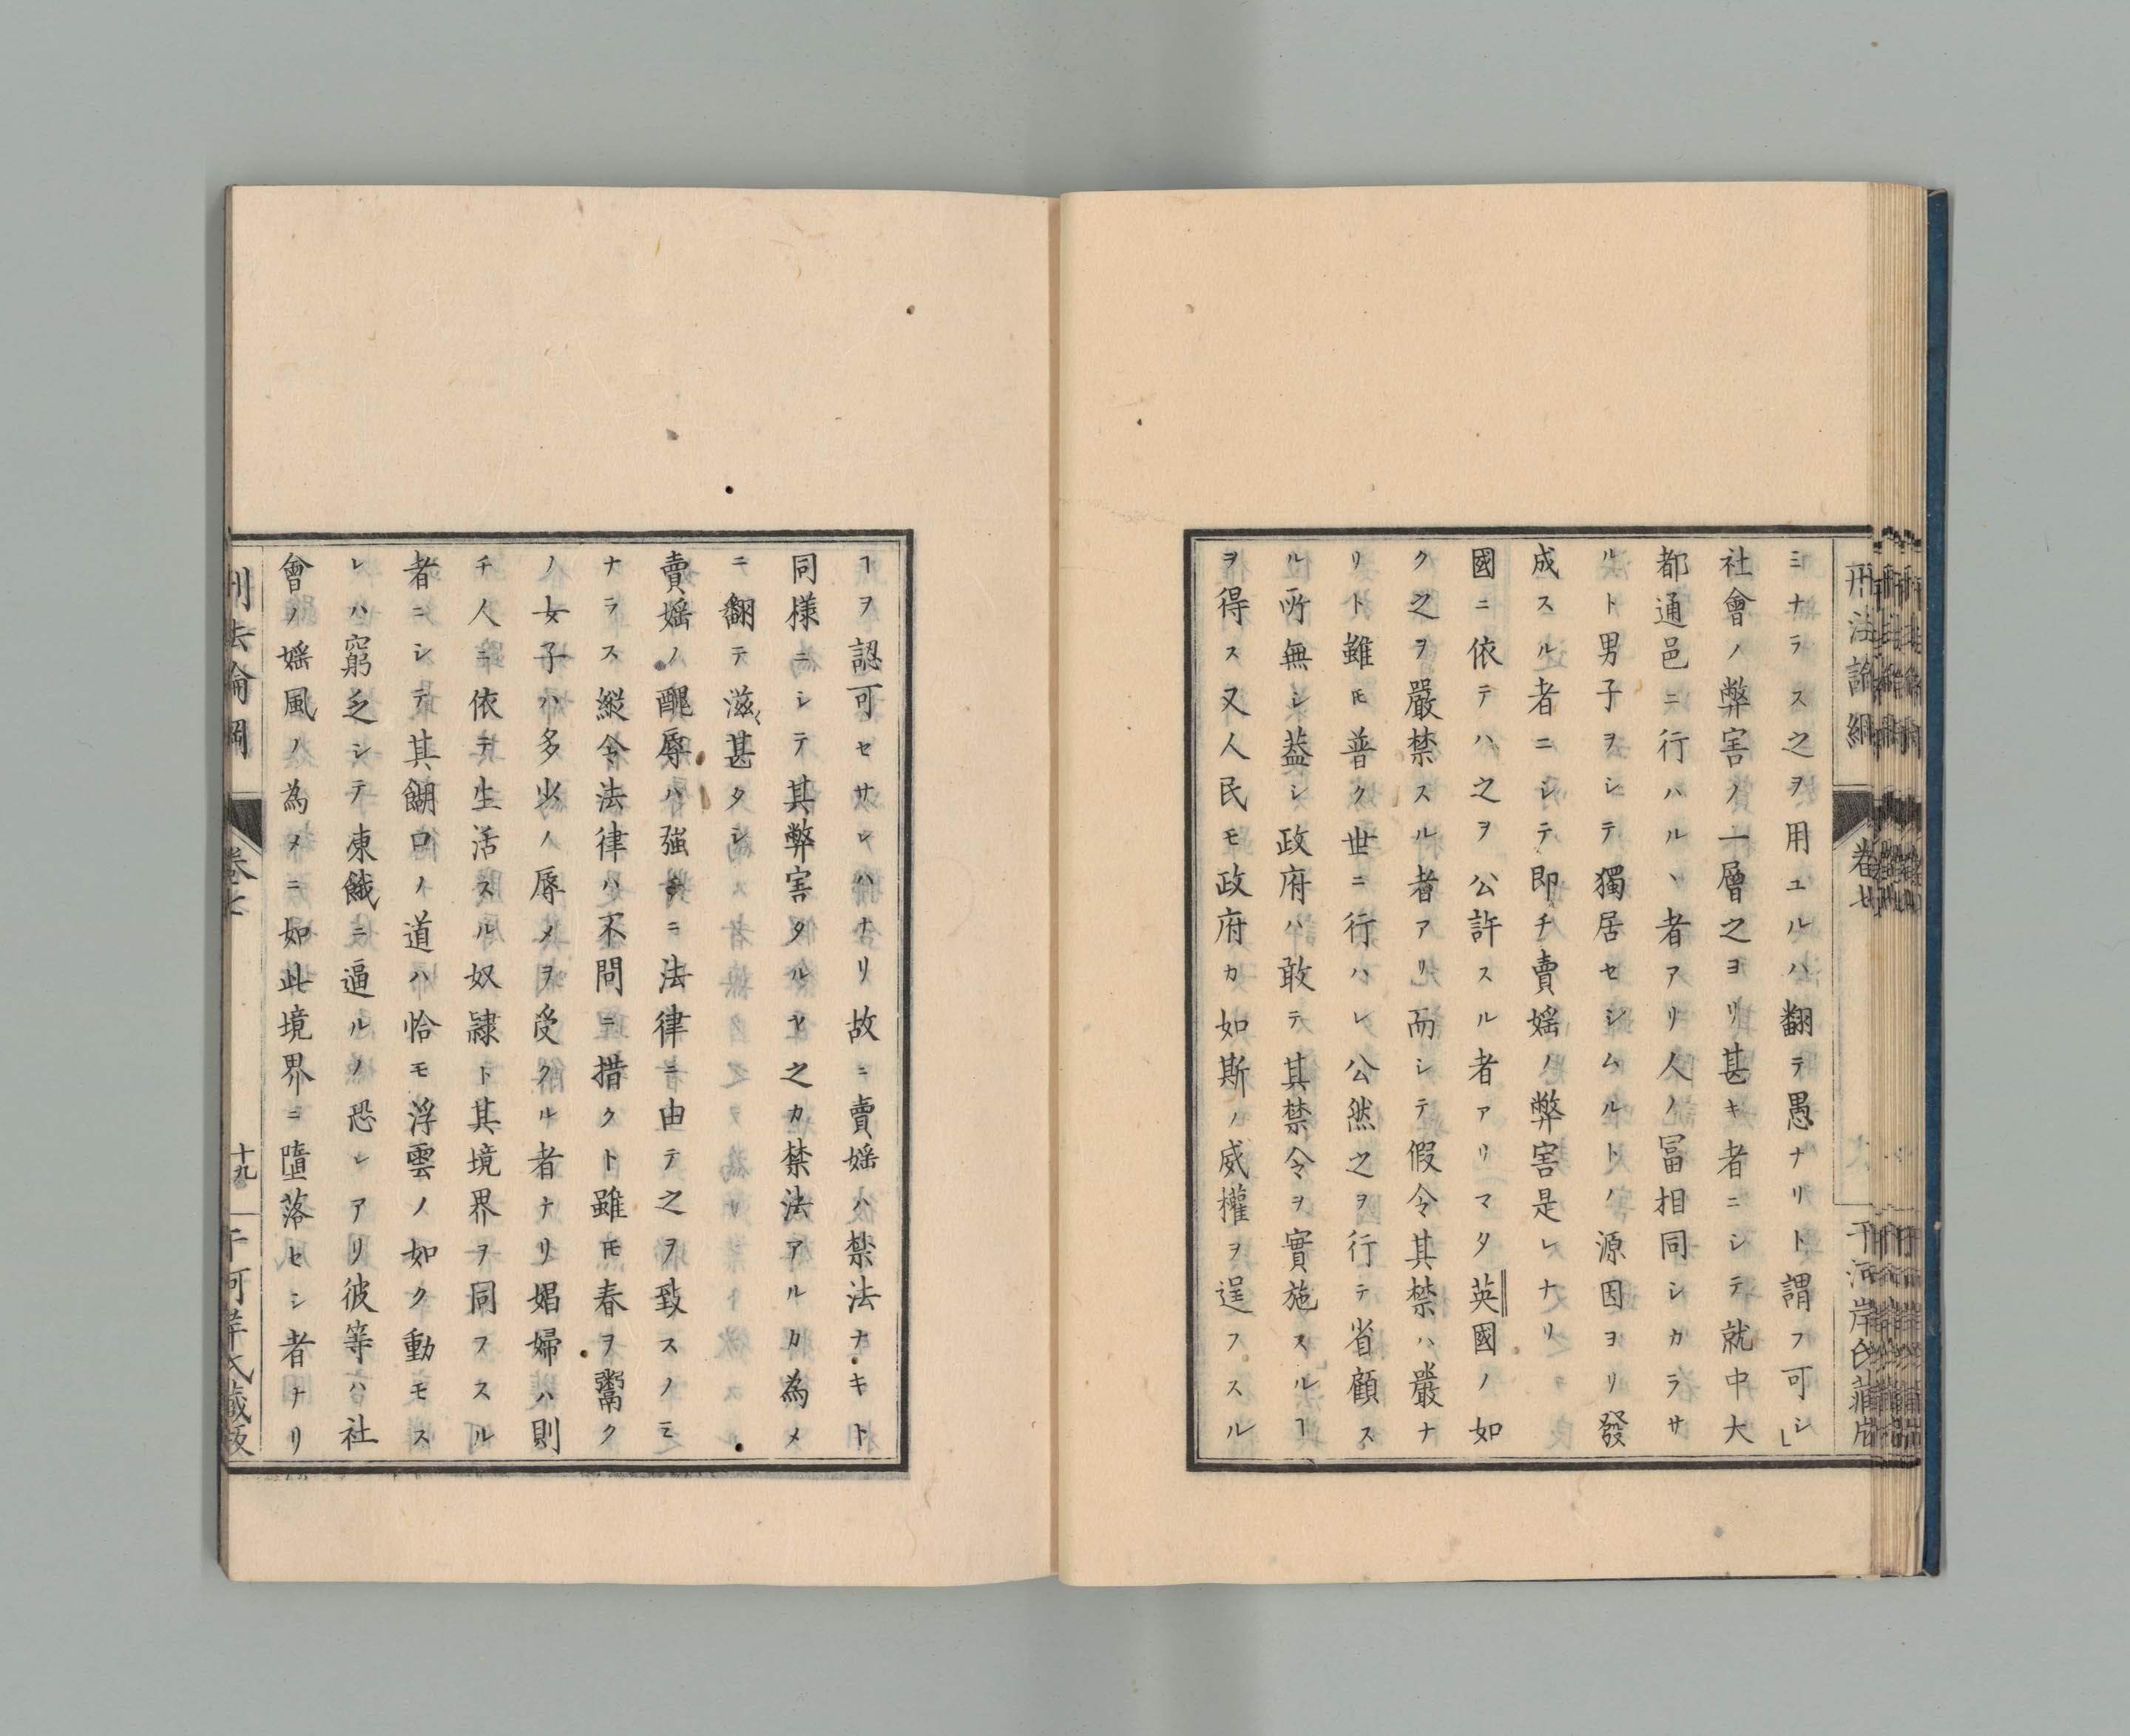 ミナラス之ヲ用ユルハ翻テ愚ナリト謂フ可シ」
社會ノ弊害ノ一層之ヨリ甚キ者ニシテ就中大
都通邑ニ行ハルヽ者アリ人ノ冨相同シカラサ
ルト男子ヲシテ獨居セシムルトノ源因ヨリ發
成スル者ニシテ即チ賣婬ノ弊害是レナリ
國ニ依テハ之ヲ公許スル者アリマタ英國ノ如
ク之ヲ嚴禁スル者アリ而シテ假令其禁ハ嚴ナ
リト雖𪜈普ク世ニ行ハレ公然之ヲ行テ省顧ス
ル所無シ蓋シ政府ハ敢テ其禁令ヲ實施スルヿ
ヲ得ス又人民モ政府カ如斯ノ威權ヲ逞フスル
ヿヲ認可セサレハナリ故ニ賣婬ハ禁法ナキト
同様ニシテ其弊害タルヤ之カ禁法アルカ為メ
ニ翻テ滋〻甚タシ
賣婬ノ醜辱ハ強チニ法律ニ由テ之ヲ致スノミ
ナラス縦令法律ハ不問ニ措クト雖𪜈春ヲ鬻ク
ノ女子ハ多少ノ辱メヲ受クル者ナリ娼婦ハ則
チ人ニ依テ生活スル奴隷ト其境界ヲ同フスル
者ニシテ其餬口ノ道ハ恰モ浮雲ノ如ク動モス
レハ窮乏シテ凍餓ニ逼ルノ恐レアリ彼等ハ社
會ノ婬風ノ為メニ如此境界ニ墮落セシ者ナリ
刑法論綱
卷七
十九
千河岸氏蔵版